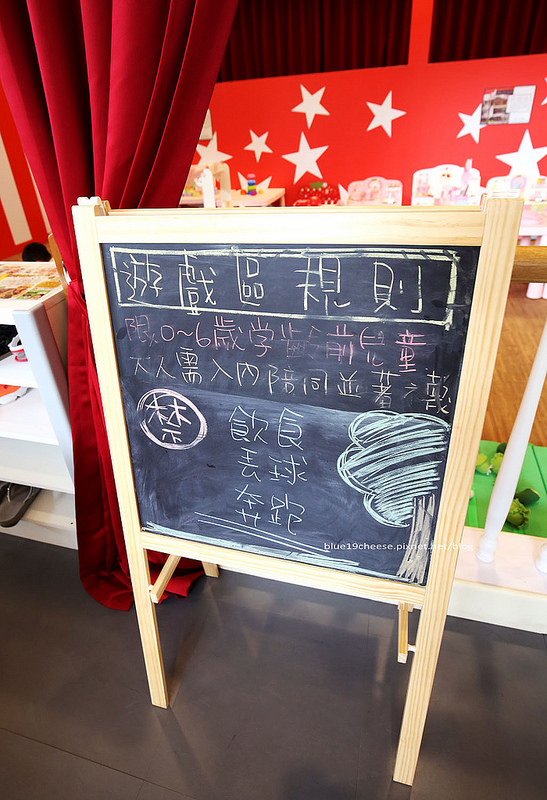 遊戲區規則
限0~6歲学齡前兒童
大人需入內陪同並著襪
禁
飲食
丟球
奔跑